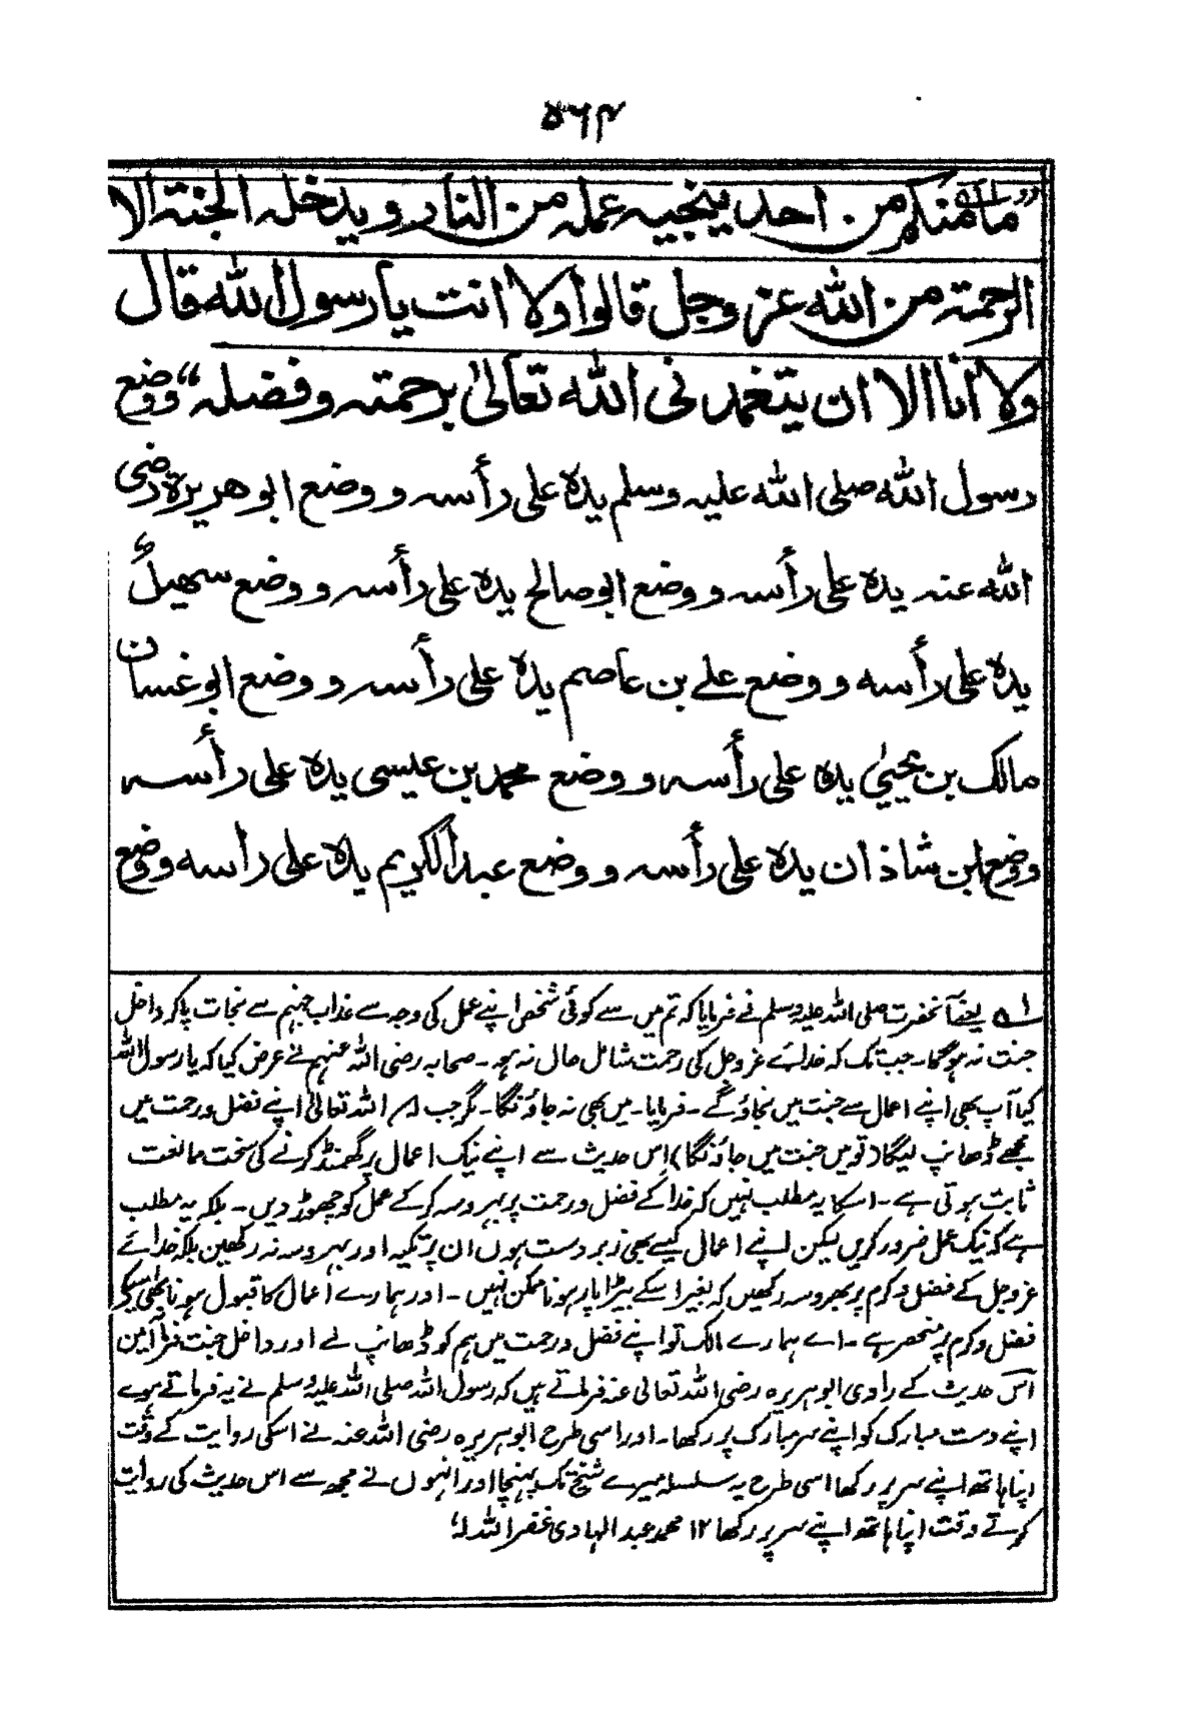 ۵۶۴
”ما منكم من احد ينجيه عمله من النار و يدخله الجنة الا
الرحمة من الله عز وجل قالوا ولا انت يا رسول الله قال
ولا أنا الا ان يتغمدنى الله تعالىٰ برحمته وفضله“ ووضع
رسول الله صلى الله عليه وسلم يده على رأسه و وضع ابو هريرة رضى
الله عنه يده على رأسه و وضع ابو صالح يده على رأسه و وضع سهيلؒ
يده على رأسه و وضع علے بن عاصم يده على رأسه و وضع ابو غسان
مالك بن يحيىٰ يده على رأسه و وضع محمد بن عيسى يده على رأسه
ووضع ابن شاذان يده على رأسه و وضع عبد الكريم يده على راسه ووضع
۱؎ یعنے آنحضرت صلی اللہ علیہ وسلم نے فرمایا کہ تم میں سے کوئی شخص اپنے عمل کی وجہ سے عذاب جہنم سے نجات پاکر داخل
جنت نہ ہوگا۔ جب تک کہ خدائے عز وجل کی رحمت شامل حال نہ ہو۔ صحابہ رضی اللہ عنہم نے عرض کیا کہ یا رسول اللہ
کیا آپ بھی اپنے اعمال سے جنت میں نجاؤگے۔ فرمایا۔ میں بھی نہ جاؤنگا۔ مگر جب اللہ تعالیٰ اپنے فضل و رحمت میں
مجھے ڈھانپ لیگا (تو میں جنت میں جاؤنگا) اس حدیث سے اپنے نیک اعمال پر گھمنڈ کرنے کی سخت ممانعت
ثابت ہوتی ہے۔ اسکا یہ مطلب نہیں کہ خدا کے فضل و رحمت پر بہروسہ کرکے عمل کو چھوڑ دیں۔ بلکہ یہ مطلب
ہے کہ نیک عمل ضرور کریں لیکن اپنے اعمال کیسے بھی زبردست ہوں ان پر تکیہ اور بہروسہ نہ رکھیں بلکہ خدائے
عز وجل کے فضل و کرم پر بھروسہ رکھیں کہ بغیر اسکے بیڑا پار ہونا ممکن نہیں۔ اور ہمارے اعمال کا قبول ہونا بھی اسیکے
فضل و کرم پر منحصر ہے۔ اے ہمارے مالک تو اپنے فضل و رحمت میں ہم کو ڈھانپ لے اور داخل جنت فرما آمین
اس حدیث کے راوی ابو ہریرہ رضی اللہ تعالی عنہ فرماتے ہیں کہ رسول اللہ صلی اللہ علیہ وسلم نے یہ فرماتے ہوے
اپنے دست مبارک کو اپنے سر مبارک پر رکھا۔ اور اسی طرح ابو ہریرہ رضی اللہ عنہ نے اسکی روایت کے وقت
اپنا ہاتھ اپنے سر پر رکھا اسی طرح یہ سلسلہ میرے شیخ تک پہنچا اور انہوں نے مجھ سے اس حدیث کی روایت
کرتے وقت اپنا ہاتھ اپنے سر پر رکھا ۱۲ محمد عبد الہادی غفر اللہ لہٗ